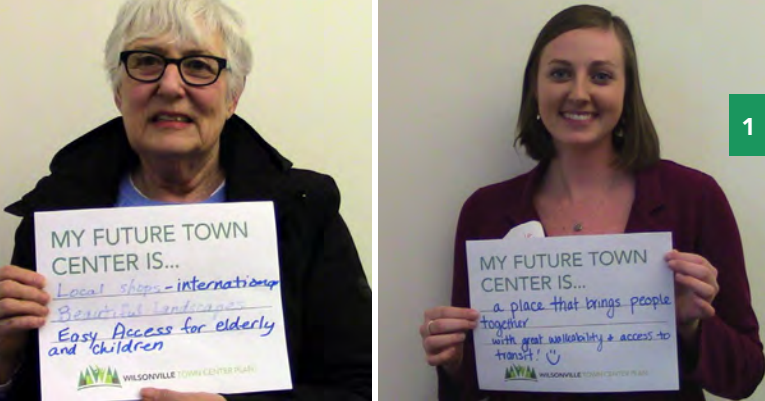 MY FUTURE TOWN
CENTER IS...
Local shops - international
Beautiful Landscapes
Easy Access for elderly
and children
WILSONVILLE TOWN CENTER PLAN
MY FUTURE TOWN
CENTER IS...
a place that brings people
together
with great walkability & access to
transit!
WILSONVILLE TOWN CENTER PLAN
1